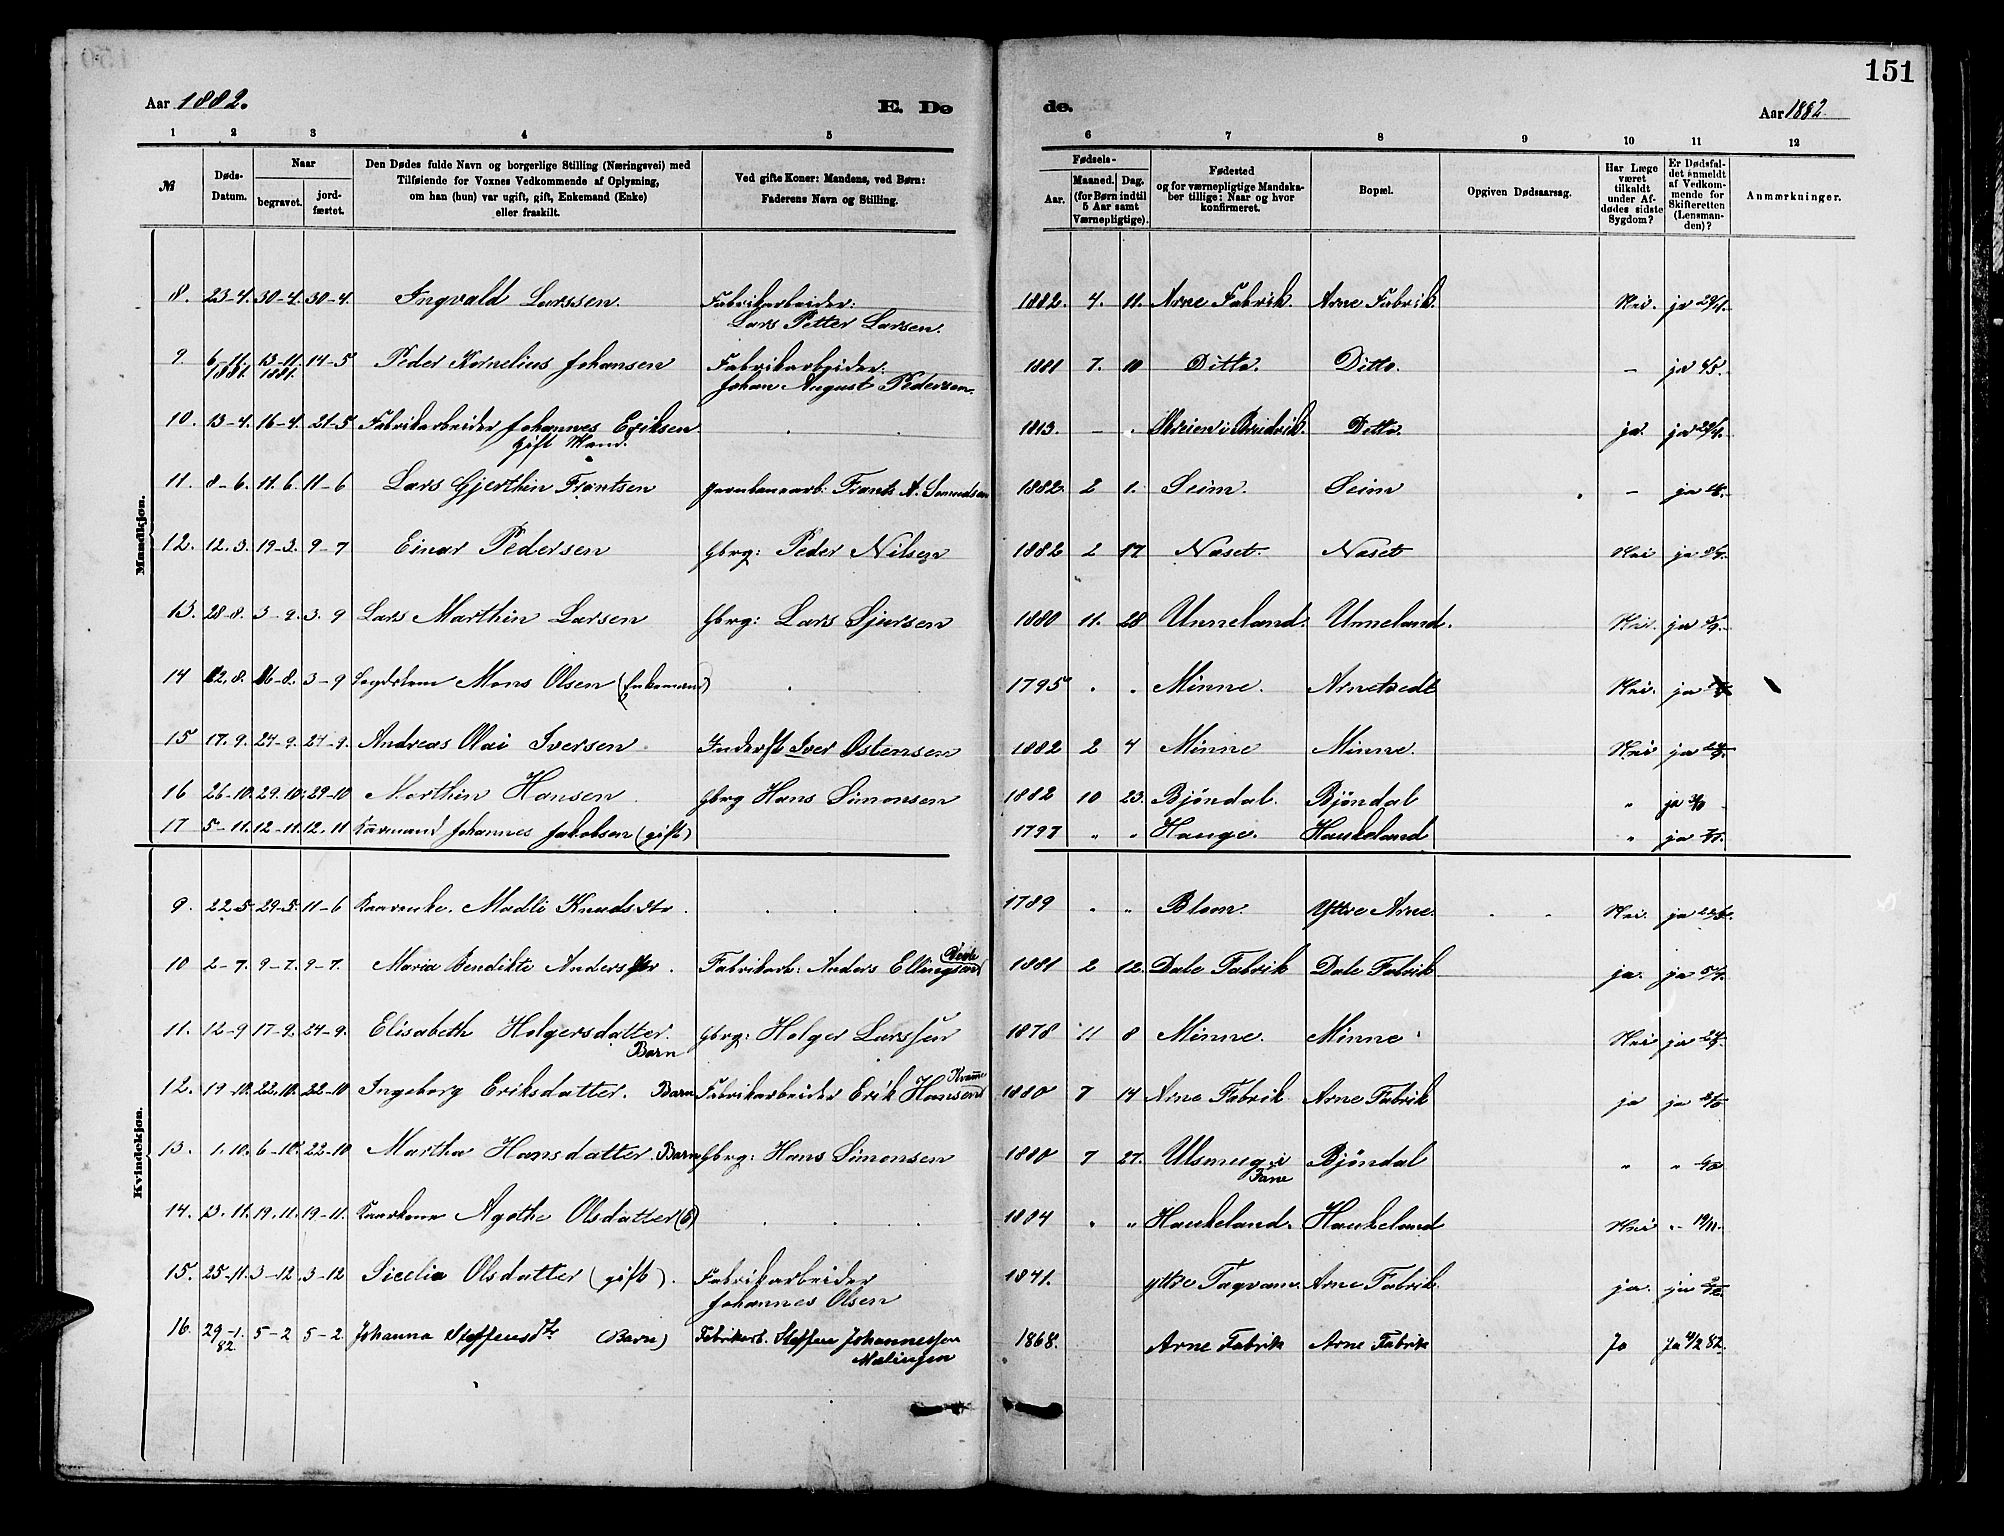 151
Aar 1882. E. Dø de. Aar 1882.
1 2 3 4 5 6 7 8 9 10 11 12
№ Døds-Datum. Naar begravet. jordfæstet. Den Dødes fulde Navn og borgerlige Stilling (Næringsvei) med Tilføiende for Voxnes Vedkommende af Oplysning, om han (hun) var ugift, gift, Enkemand (Enke) eller fraskilt. Ved gifte Koner: Mandens, ved Børn: Faderens Navn og Stilling. Fødsels- Aar. Maaned. Dag. (for Børn indtil 5 Aar samt Værnepligtige). Fødested og for værnepligtige Mandskaber tillige: Naar og hvor konfirmeret. Bopæl. Opgiven Dødsaarsag. Har Læge været tilkaldt under Afdødes sidste Sygdom? Er Dødsfaldet anmeldt af Vedkommende for Skifteretten (Lensmanden)? Anmærkninger.
Mandkjøn.
8. 23-4. 30-4. 30-4. Ingvald Larssen. Fabrikarbeider: Lars Petter Larsen. 1882. 4. 11. Arne Fabrik. Arne Fabrik. Nei. ja
9. 6-11. 1881. 13-11. 1881. 14-5 Peder Kornelius Johansen Fabrikarbeider: Johan August Pedersen. 1881 7. 10 Ditto. Ditto. - ja
10. 13-4. 16-4. 21-5 Fabrikarbeider Johannes Eriksen Gift Mand. 1813. - Ditto. ja. ja
11. 8-6. 11.6. 11-6 Lars Gjerthin Frantsen Jernbanearb: Frants A. 1882. 2 1. Seim. Seim - ja
12. 12.3. 19-3. 9-7 Einar Pedersen Gbrg: Peder Nilsen 1882 2 17 Naset Naset Nei ja
13. 28-8. 3-9. 3.9 Lars Marthin Larsen Gbrg: Lars Sjursen 1880 11. 28 Unneland. Unneland. Nei. ja
14 12.8. 16-8. 3-9 Mons Olsen (Enkemand) 1795 Minne. Arnetvedt Nei. ja
15 17.9. 24-9. 24-9. Andreas Olai Iversen Inderst Iver Ostensen 1882 2 4 Minne Minne. Nei ja
16 26-10. 29.10. 29-10 Marthin Hansen. Gbrg Hans Simonsen 1882 10 23. Bjöndal. Bjöndal " ja
17 5-11. 12-11. 12.11 Kaarmand Johannes Jakobsen (gift) 1797 " " Hauge. Haukeland " ja
Kvindekjøn.
9. 22-5 29-5. 11-6 Kaarenke. Madli Knudsdtr. 1789 " " Blom. Yttre Arne. Nei. ja
10 2-7. 9-7. 9-7. Maria Bendikte Andersdtr. Fabrikarb: Anders Ellingsen 1881 2 12. Dale Fabrik Dale Fabrik ja. ja
11. 12-9 17-9. 24-9. Elisabeth Holgersdatter. Barn Gbrg: Holger Larssen 1878 11 8 Minne. Minne Nei ja
12. 19-10. 22.10. 22-10 Ingeborg Eriksdatter. Barn Fabrikarbeider Erik Hansen Kvamme 1880 7 14 Arne Fabrik. Arne Fabrik ja ja
13. 1.10. 6-10. 22-10 Martha Hansdatter. Barn Gbrg: Hans Simonsen 1880 7 27. i Fane Bjöndal " "
14. 13.11. 19.11. 19-11. Kaarkone Agathe Olsdatter (G) 1804 " " Haukeland. Haukeland Nei " 19/11.
15. 25-11. 3-12 3-12 Sicelia Olsdatter (gift). Fabrikarbeider Johannes Olsen 1841. yttre Arne Fabrik. ja. ja
16. 29-1. 82. 5-2 5-2. Johanna Steffensdtr (Barn) Fabrikarb. Steffen Johannessen 1868. Arne Fabrik Arne Fabrik Ja Ja 4/2 82.